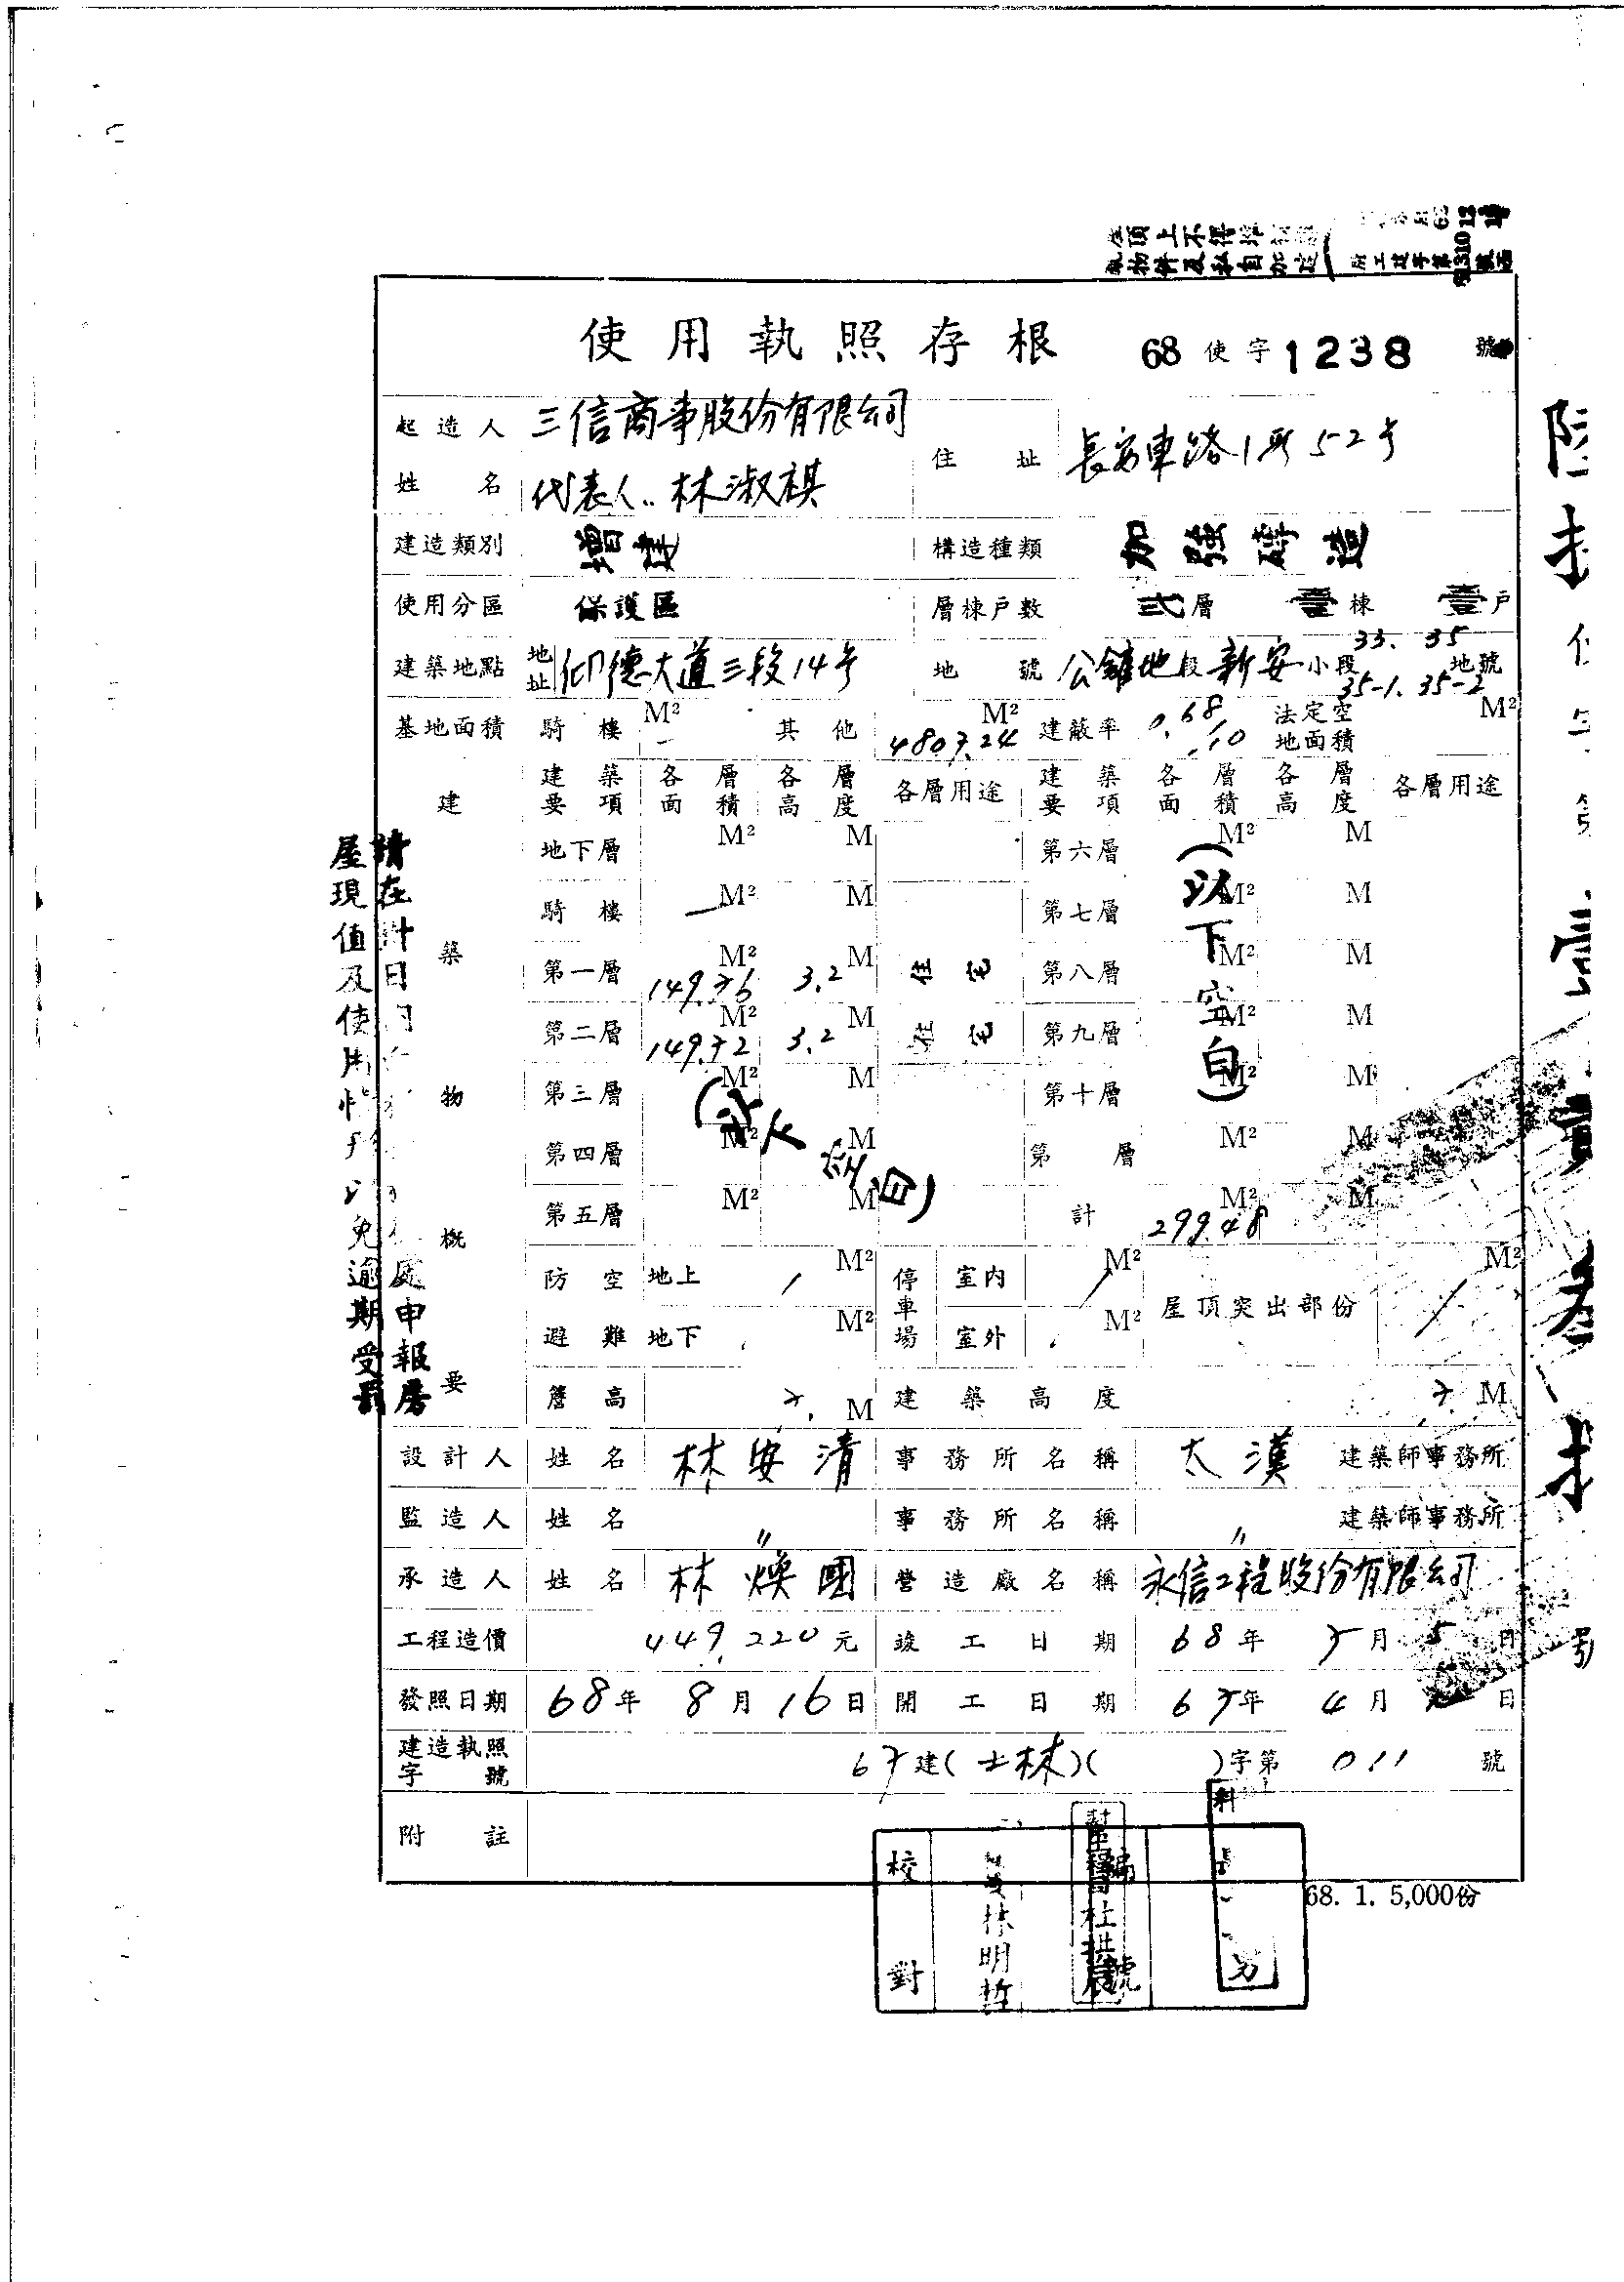 頂上不得堆
物件及私自加
使用執照存根 68使字1238號
起造人姓名 三信商事股份有限公司
代表人..林淑祺
住址 長安東路1段52号
建造類別 增建 構造種類 加強磚造
使用分區 保護區 層棟戶數 弍層 壹棟 壹戶
建築地點 地址 仰德大道三段14号 地號 公館地段新安小段33.35 35-1.35-2地號
基地面積 騎樓 M² 其他 4807.24 M² 建蔽率 0.68/10 法定空地面積 M²
建築物概要
建築要項 各層面積 各層高度 各層用途 建築要項 各層面積 各層高度 各層用途
地下層 M² M 第六層 M² M
騎樓 — M² M 第七層 M² M
第一層 149.76 M² 3.2 M 住宅 第八層 M² M
第二層 149.72 M² 3.2 M 住宅 第九層 M² M
第三層 M² M 第十層 M² M
第四層 M² M 第 層 M² M
第五層 M² M 計 299.48 M² M
(以下空白)
(以下空白)
防空避難 地上 / M² 停車場 室內 / M² 屋頂突出部份 / M²
地下 M² 室外 M²
簷高 7. M 建築高度 7 M
設計人 姓名 林安清 事務所名稱 太漢 建築師事務所
監造人 姓名 〃 事務所名稱 〃 建築師事務所
承造人 姓名 林煥國 營造廠名稱 永信工程股份有限公司
工程造價 449,220元 竣工日期 68年7月5日
發照日期 68年8月16日 開工日期 67年4月 日
建造執照字號 67建(士林)( )字第011號
附註
68. 1. 5,000份
校對
林明哲
號
請在 日
處申報房
屋現值及使用
免逾期受罰